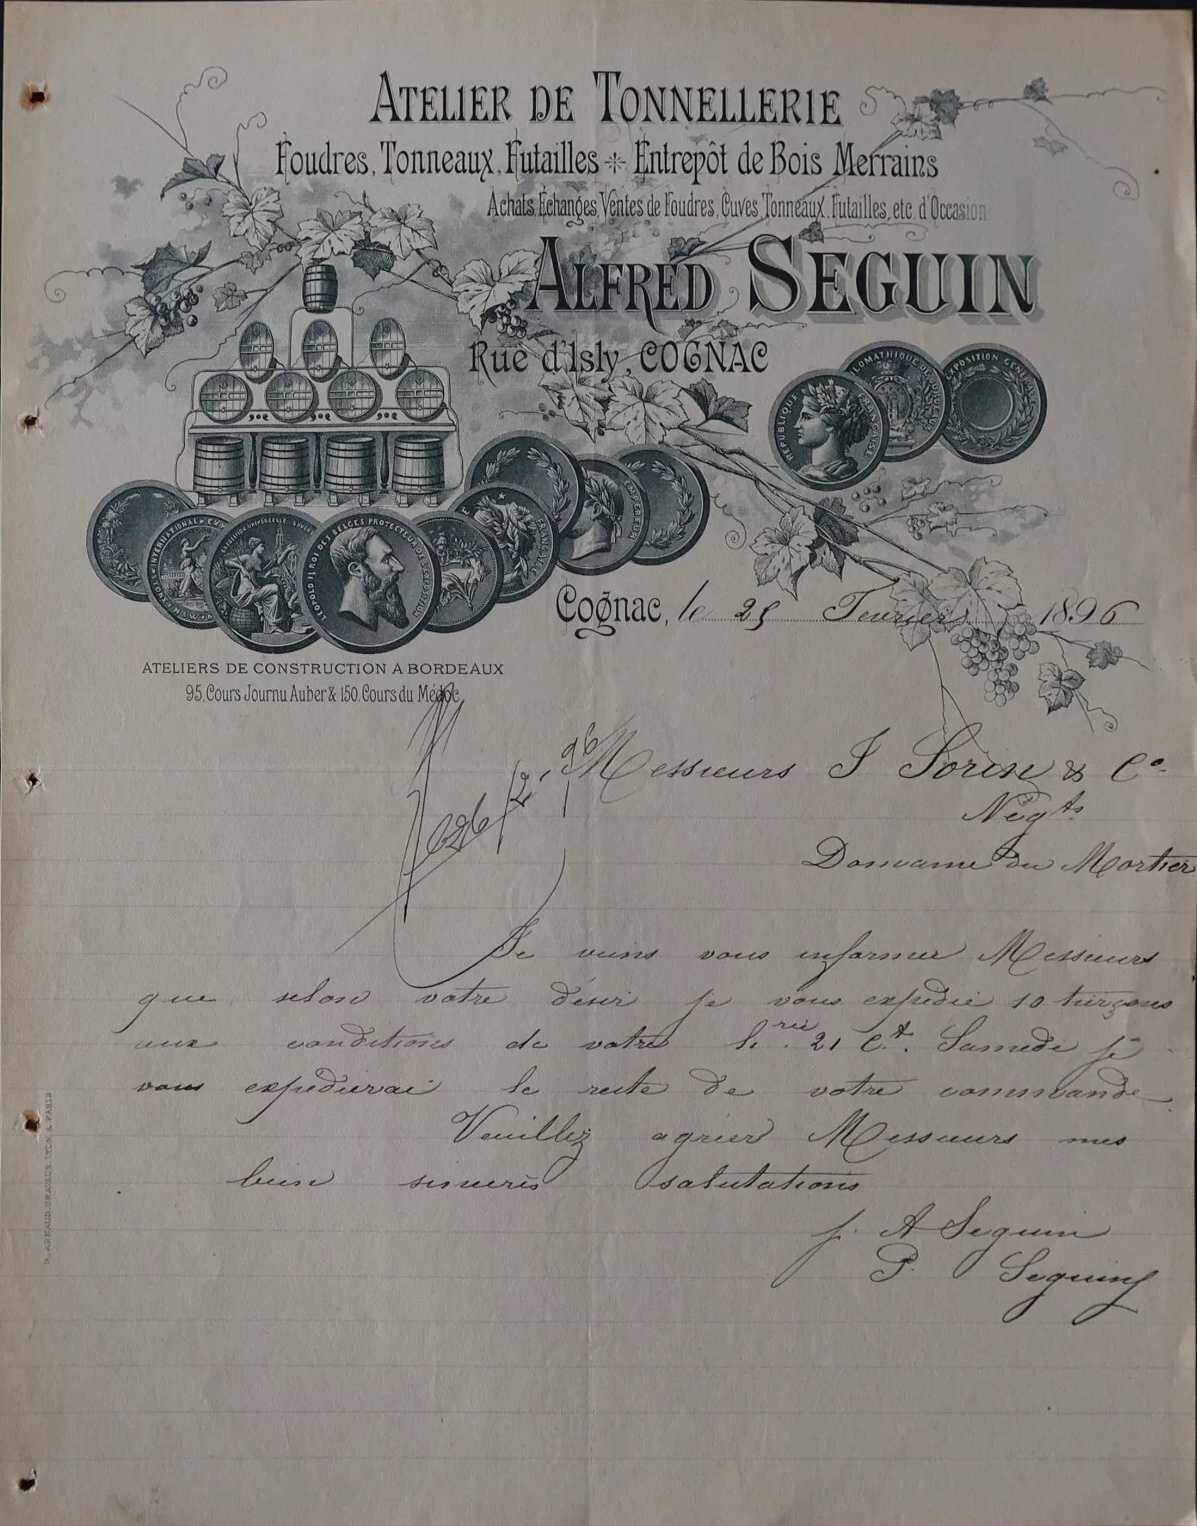 ATELIER DE TONNELLERIE
Foudres, Tonneaux, Futailles * Entrepôt de Bois Merrains
Achats, Echanges, Ventes de Foudres, Cuves, Tonneaux, Futailles, etc. d'Occasion
ALFRED SEGUIN
Rue d'Isly, COGNAC
RÉPUBLIQUE FRANÇAISE
EXPOSITION GÉNÉRALE
LEOPOLD II ROI DES BELGES PROTECTEUR DE L'EXPOSITION
Cognac, le 25 Fevrier 1896
ATELIERS DE CONSTRUCTION A BORDEAUX
95, Cours Journu Auber & 150, Cours du Médoc
26/2.96
Messieurs J Sorin & Co
Negts
Domaine du Mortier
Je viens vous informer Messieurs
que selon votre désir je vous expedie 10 tierçons
aux conditions de votre h.rée 21 Ct. Samedi je
vous expedierai le reste de votre commande
Veuillez agrier Messieurs mes
bien sincerès salutations
p. A Seguin
P. Seguin